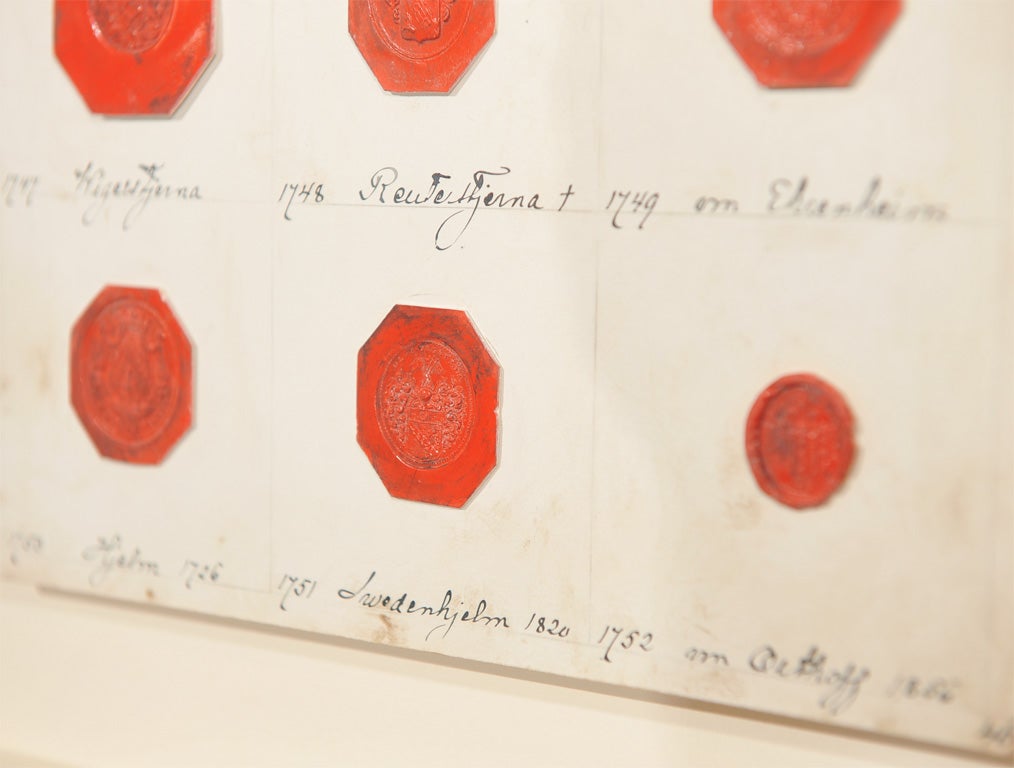 1747 Wigelstjerna 1748 Reutestjerna † 1749 von Ehrenheim
1750 Hjelm 1726 1751 Swedenhjelm 1820 1752 von